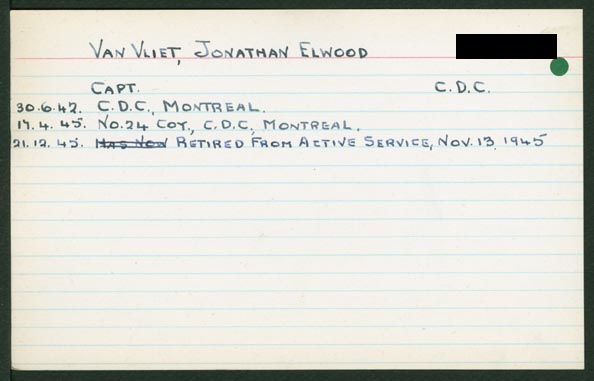 VAN VLIET, JONATHAN ELWOOD
CAPT. C.D.C.
30.6.42. C.D.C., MONTREAL.
17.4.45. NO.24 COY., C.D.C., MONTREAL.
21.12.45. HAS NOW RETIRED FROM ACTIVE SERVICE, NOV. 13, 1945